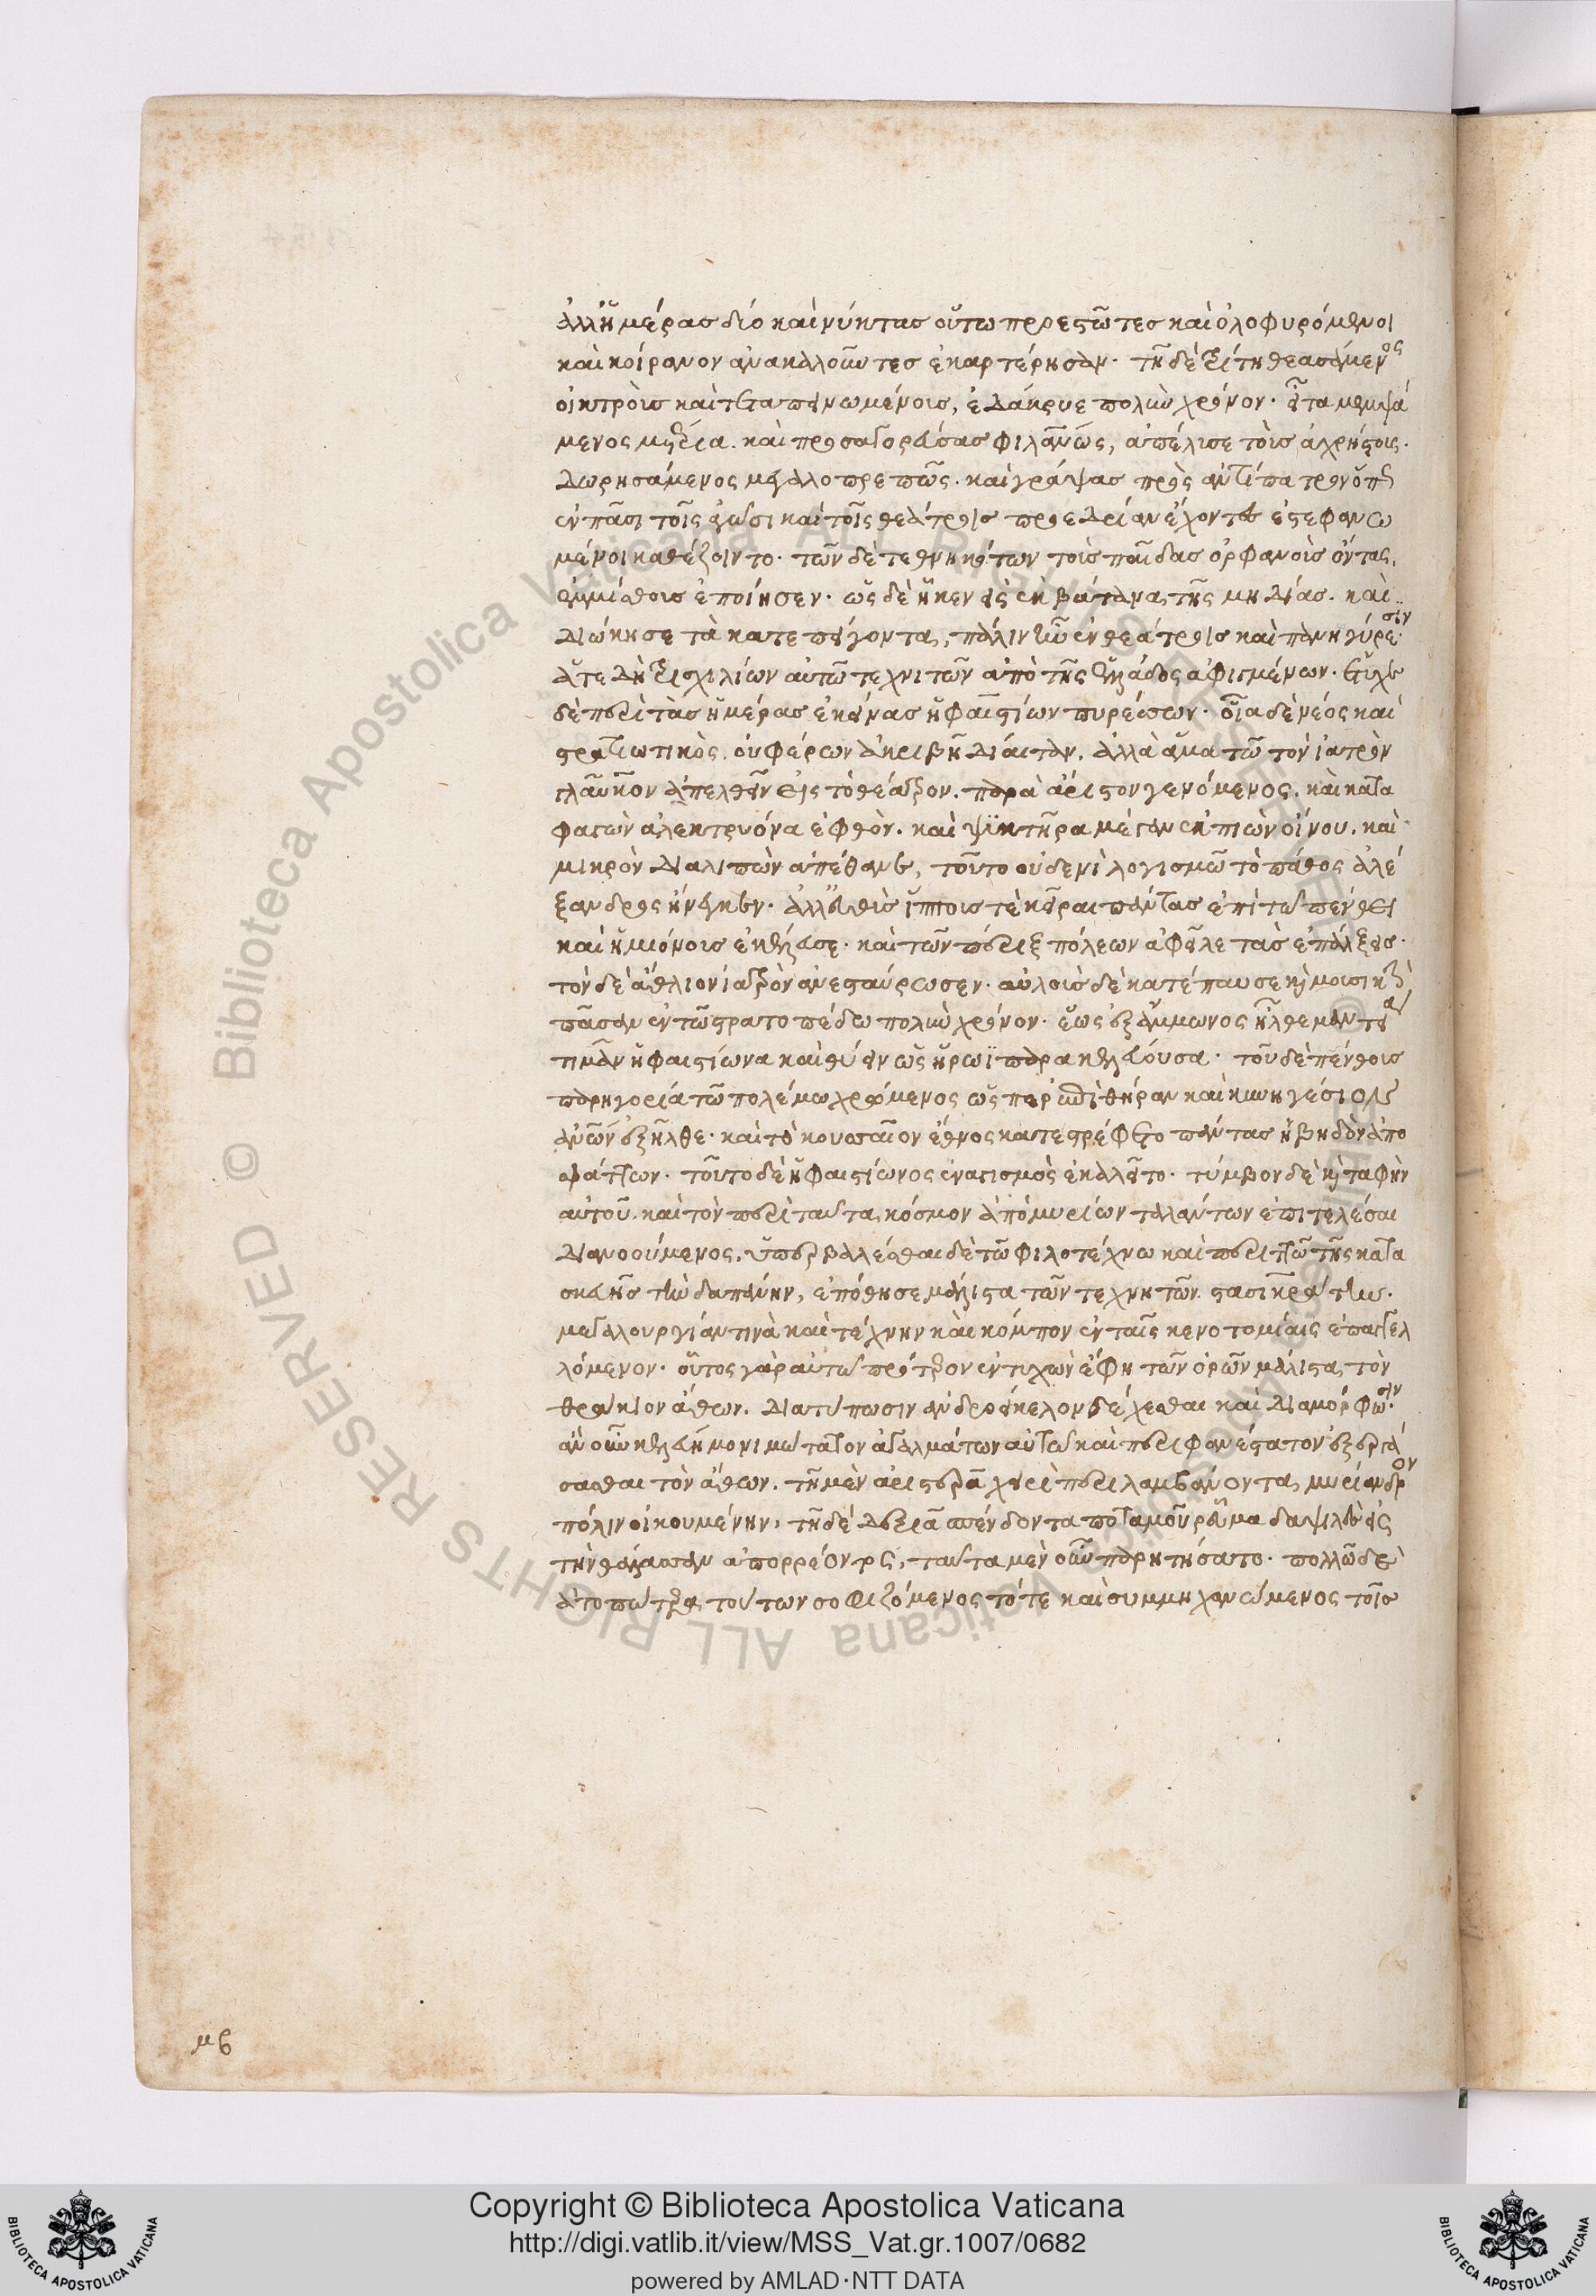 ἀλλ' ἡμέρας δύο καὶ νύκτας οὕτω προεστῶτες καὶ ὀλοφυρόμενοι
καὶ κοίρανον ἀνακαλοῦντες ἐκαρτέρησαν. τῇ δὲ τρίτῃ θεασάμενος
οἰκτροὺς καὶ τεταπεινωμένους, ἐδάκρυε πολὺν χρόνον. εἶτα μεμψά
μενος μέτρια. καὶ προσαγορεύσας φιλανως, ἀπέλυσε τοὺς ἀχρήστους.
δωρησάμενος μεγαλοπρεπῶς. καὶ γράψας πρὸς ἀντίπατρον ὅπως
ἐν πᾶσι τοῖς ἀγῶσι καὶ τοῖς θεάτροις προεδρίαν ἔχοντες ἐστεφανω
μένοι καθέζοιντο. τῶν δὲ τεθνηκότων τοὺς παῖδας ὀρφανοὺς ὄντας,
ἐμμίσθους ἐποίησεν. ὡς δὲ ἧκεν εἰς ἐκβάτανα τῆς μηδίας. καὶ
διώκησε τὰ κατεπείγοντα, πάλιν ἦν ἐν θεάτροις καὶ πανηγύρεσιν.
ἅτε δὴ τρισχιλίων αὐτῶ τεχνιτῶν ἀπὸ τῆς ἑλλάδος ἀφιγμένων. ἔτυχε
δὲ περὶ τὰς ἡμέρας ἐκείνας ἡφαιστίων πυρέσσων. οἷα δὲ νέος καὶ
στρατιωτικὸς. οὐ φέρων ἀκριβῆ δίαιταν. ἀλλὰ ἅμα τῶ τὸν ἰατρὸν
γλαῦκον ἀπελθεῖν εἰς τὸ θέατρον. παρὰ ἄριστον γενόμενος. καὶ κατα
φαγὼν ἀλεκτρυόνα ἑφθὸν. καὶ ψϊκτῆρα μέγαν ἐκπιὼν οἴνου. καὶ
μικρὸν διαλιπὼν ἀπέθανε, τοῦτο οὐδενὶ λογισμῶ τὸ πάθος ἀλέ
ξανδρος ἤνεγκεν. ἀλλ' εὐθὺς ἵππους τὲ κεῖραι πάντας ἐπὶ τῶ πένθει
καὶ ἡμιόνους ἐκέλευσε. καὶ τῶν πέριξ πόλεων ἀφεῖλε τὰς ἐπάλξεις.
τὸν δὲ ἄθλιον ἰατρὸν ἀνεσταύρωσεν. αὐλοὺς δὲ κατέπαυσε κὶ μουσικὴν
πᾶσαν ἐν τῶ στρατοπέδω πολὺν χρόνον. ἕως ἐξ ἄμμωνος ἦλθε μαντεία
τιμᾶν ἡφαιστίωνα καὶ θύειν ὡς ἥρωϊ παρακελεύουσα. τοῦ δὲ πένθους
παρηγορία τῶ πολέμω χρώμενος ὥσπερ ἐπὶ θήραν καὶ κυνηγέσιον
ἀνῶν ἐξῆλθε. καὶ τὸ κουσσαῖον ἔθνος κατεστρέφετο πάντας ἡβηδὸν ἀπο
σφάττων. τοῦτο δὲ ἡφαιστίωνος ἐναγισμὸς ἐκαλεῖτο. τύμβον δὲ κὶ ταφὴν
αὐτοῦ. καὶ τὸν περὶ ταῦτα κόσμον ἀπὸ μυρίων ταλάντων ἐπιτελέσαι
διανοούμενος. ὑπερβαλέσθαι δὲ τῶ φιλοτέχνω καὶ περιττῶ τῆς κατα
σκευῆς τὴν δαπάνην, ἐπόθησε μάλιστα τῶν τεχνητῶν. στασικράτην.
μεγαλουργίαν τινὰ καὶ τέχνην καὶ κόμπον ἐν ταῖς κενοτομίαις ἐπαγγελ
λόμενον. οὗτος γὰρ αὐτῶ πρότερον ἐντυχὼν ἔφη τῶν ὀρῶν μάλιστα τὸν
θράκιον ἄθων. διατύπωσιν ἀνδρείκελον δέχεσθαι καὶ διαμόρφωσιν.
ἂν οὖν κελεύη μονιμώτατον ἀγαλμάτων αὐτῶ καὶ περιφανέστατον ἐξεργά
σασθαι τὸν ἄθων. τῇ μὲν ἀριστερᾶ χειρὶ περιλαμβάνοντα, μυρίανδρον
πόλιν οἰκουμένην, τῇ δὲ δεξιᾶ σπένδοντα ποταμοῦ ῥεῦμα δαψιλὲς εἰς
τὴν θάλασσαν ἀπορρέοντος, ταῦτα μὲν οὖν παρητήσατο. πολλῶ δὲ
ἀτοπώτερα τούτων σοφιζόμενος τότε καὶ συμμηχανώμενος τοῖς
μβ
Copyright © Biblioteca Apostolica Vaticana
http://digi.vatlib.it/view/MSS_Vat.gr.1007/0682
powered by AMLAD·NTT DATA